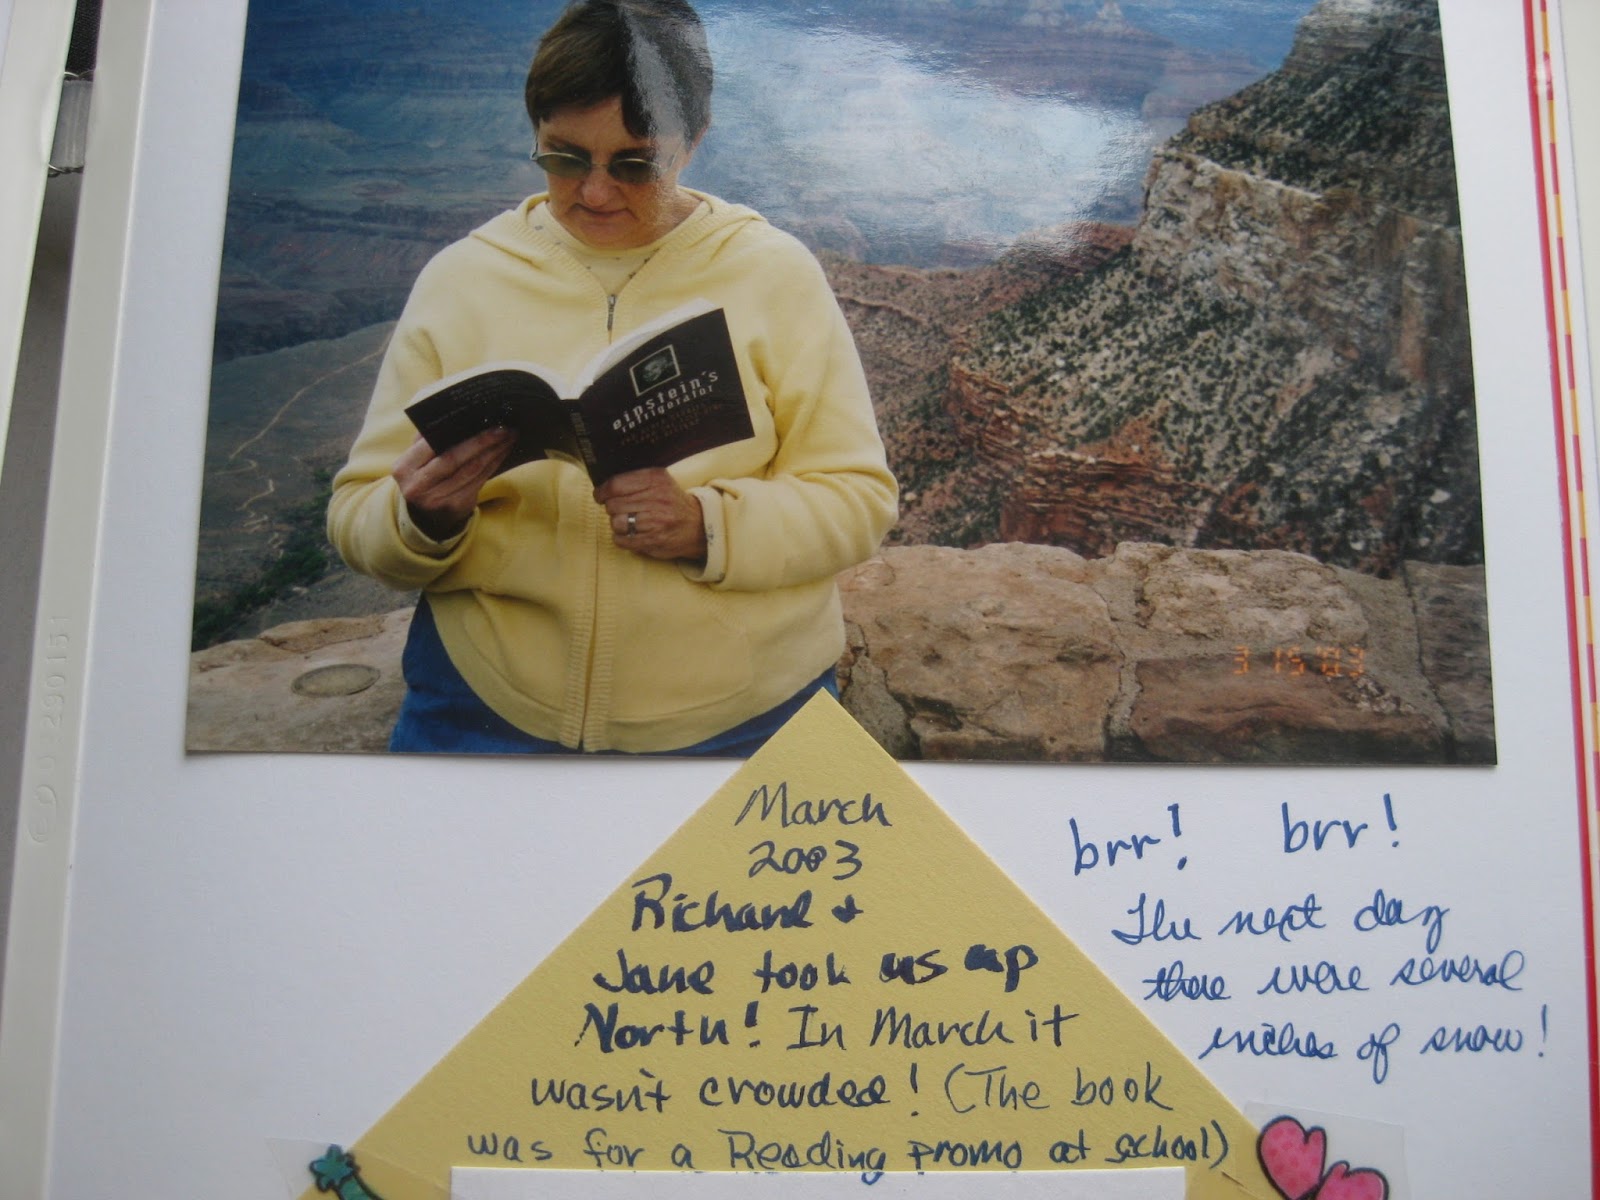 einstein's
refrigerator
3 15 '03
March
2003
Richard +
Jane took us up
North! In March it
wasn't crowded! (The book
was for a Reading promo at school)
brr! brr!
The next day
there were several
inches of snow!
290151